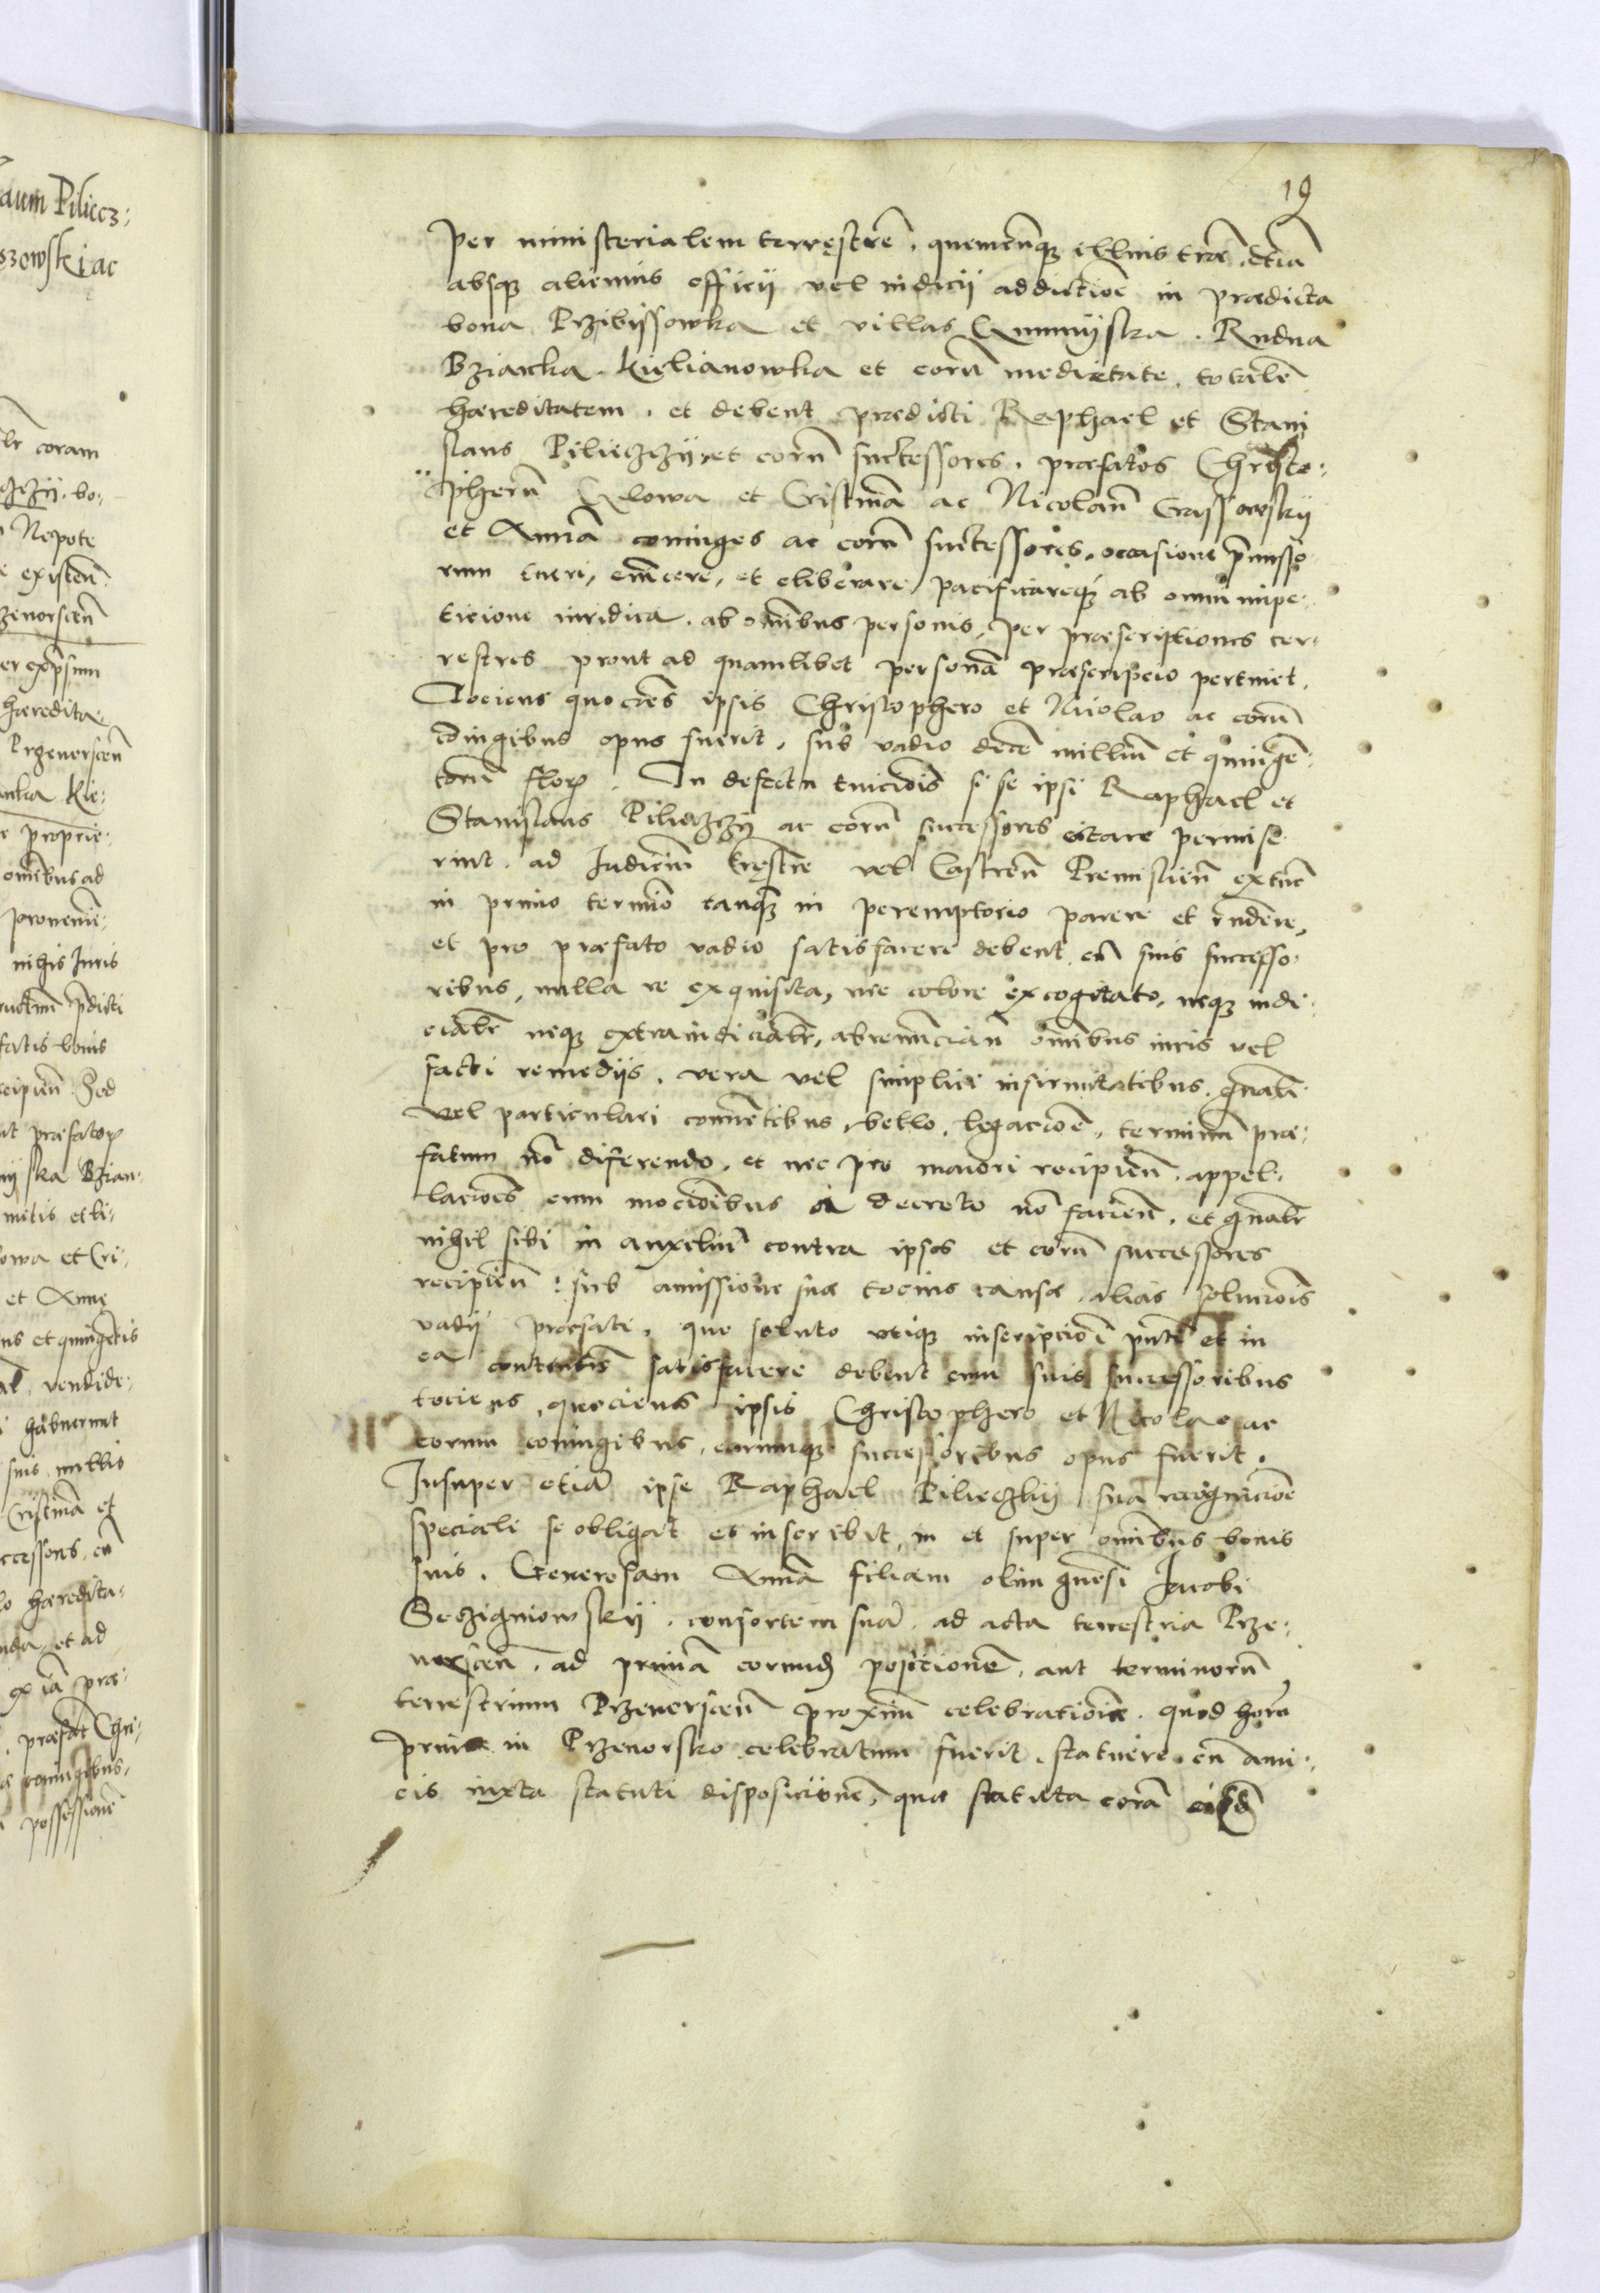 aum Piliecz:
szowskiac
lr coram
czÿ. bo:
Nepote
e existeñ
zeuorsceñ
er expssum
hæredita:
Przeuorsceñ
anka Kie:
r proprie:
omĩbus ad
prouenie:
nihis Juris
p̃dicti
fatis bonis
cipieñ. Sed
ut præfator
ska Bzian:
mitis et li:
owa et Cri:
et Annę
ns et quingẽtis
vendide:
habuerunt
suis nullis
Cristinã et
ccessores, cũ
hæredita:
nda, et ad
ex ea præ:
præfat Chri:
coniugibus,
possessionẽ
19
Per ministerialem terręstrẽ, quemcũq illius terræ, etiã
absq alicuius officii vel iudicii addictioẽ in prædicta
bona Przibissowka et villas Gumnÿska. Rudna
Bzianka. Kielianowka et eorũ medietate, totalẽ
hæreditatem. et debent prædicti Raphael et Stani
slaus Pilieczÿ et eorũ successores. præfatos Christo:
pherũ Glowa et Cristinã ac Nicolaũ Grassowskÿ
et Annã coniuges ac eorũ successores, occasione p̃misso
rum tueri, euĩcere, et eliberare pacificareq́ ab omni impe:
ticione iuridica. ab omĩbus personis, per præscriptiones ter:
restres prout ad quamlibet personã præscripcio pertinet.
Tociens quocies ipsis Christophero et Nicolao ac eorũ
cõiugibus opus fuerit, sub vadio decẽ milliũ et quingẽ:
torũ flor. In defectu euicciõis si se ipsi Raphael et
Stanislaus Pilieczÿ ac eorũ successores citare permise
rint. ad Judiciũ tręstre vel Castreñ Premislieñ extũc
in primo termĩo tanq̃ in peremptorio parere et rñdere,
et pro præfato vadio satisfacere debent cũ suis successo:
ribus, nulla re exquisita, nec colore excogitato, neq iudi:
cialr̃ neq extraiudicialr̃, abrenuncianñ omĩbus iuris vel
facti remediis. vera vel simplici infirmitatibus. gñali
vel particulari conuẽtibus, bello, legacioẽ, terminũ præ:
fatum nõ diferendo. et nec pro maiori recipieñ. appel:
lacioẽs cum mocioĩbus a decreto nõ facieñ. et gñalr̃
nihil sibi in auxiliũ contra ipsos et eorũ successores
recipieñ: sub amissione suæ tocius causæ, alias soluciõis
vadii præfati. quo soluto vtiq inscripcioĩ p̃nti et in
ea contentis satisfacere debent cum suis successoribus
tociens, quociens ipsis Christophero et Nicolao ac
eorum coniugibus, earumq successoribus opus fuerit.
Insuper etiã ipse Raphael Pilieczkÿ sua recognicioẽ
speciali se obligat et inscribit, in et super omĩbus bonis
suis. Generosam Annã filiam olim gñosi Jacobi
Seczigniowskÿ. consortem suã. ad acta terrestria Prze:
uorsceñ. ad primã eorund posicionẽ, aut terminorũ
terrestrium Przeuorsceñ proximũ celebrationẽ. quod horũ
prius in Przeuorsko celebratum fuerit. statuere cũ ami:
cis iuxta statuti disposicionẽ, quæ statuta corã eisd̃